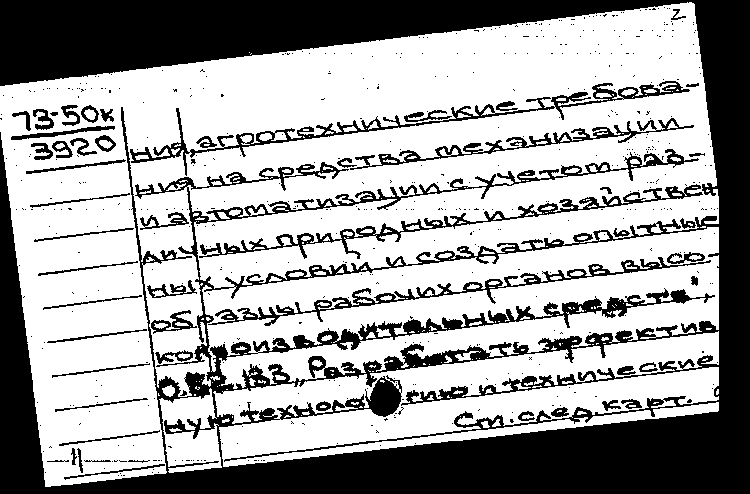 2
73-50к
3920
ния, агротехнические требова-
ния на средства механизации
и автоматизации с учетом раз-
личных природных и хозяйствен
ных условий и создать опытные
образцы рабочих органов высо-
копроизводительных средств",
"Разработать эффектив
ную технологию и технические
См. след. карт.